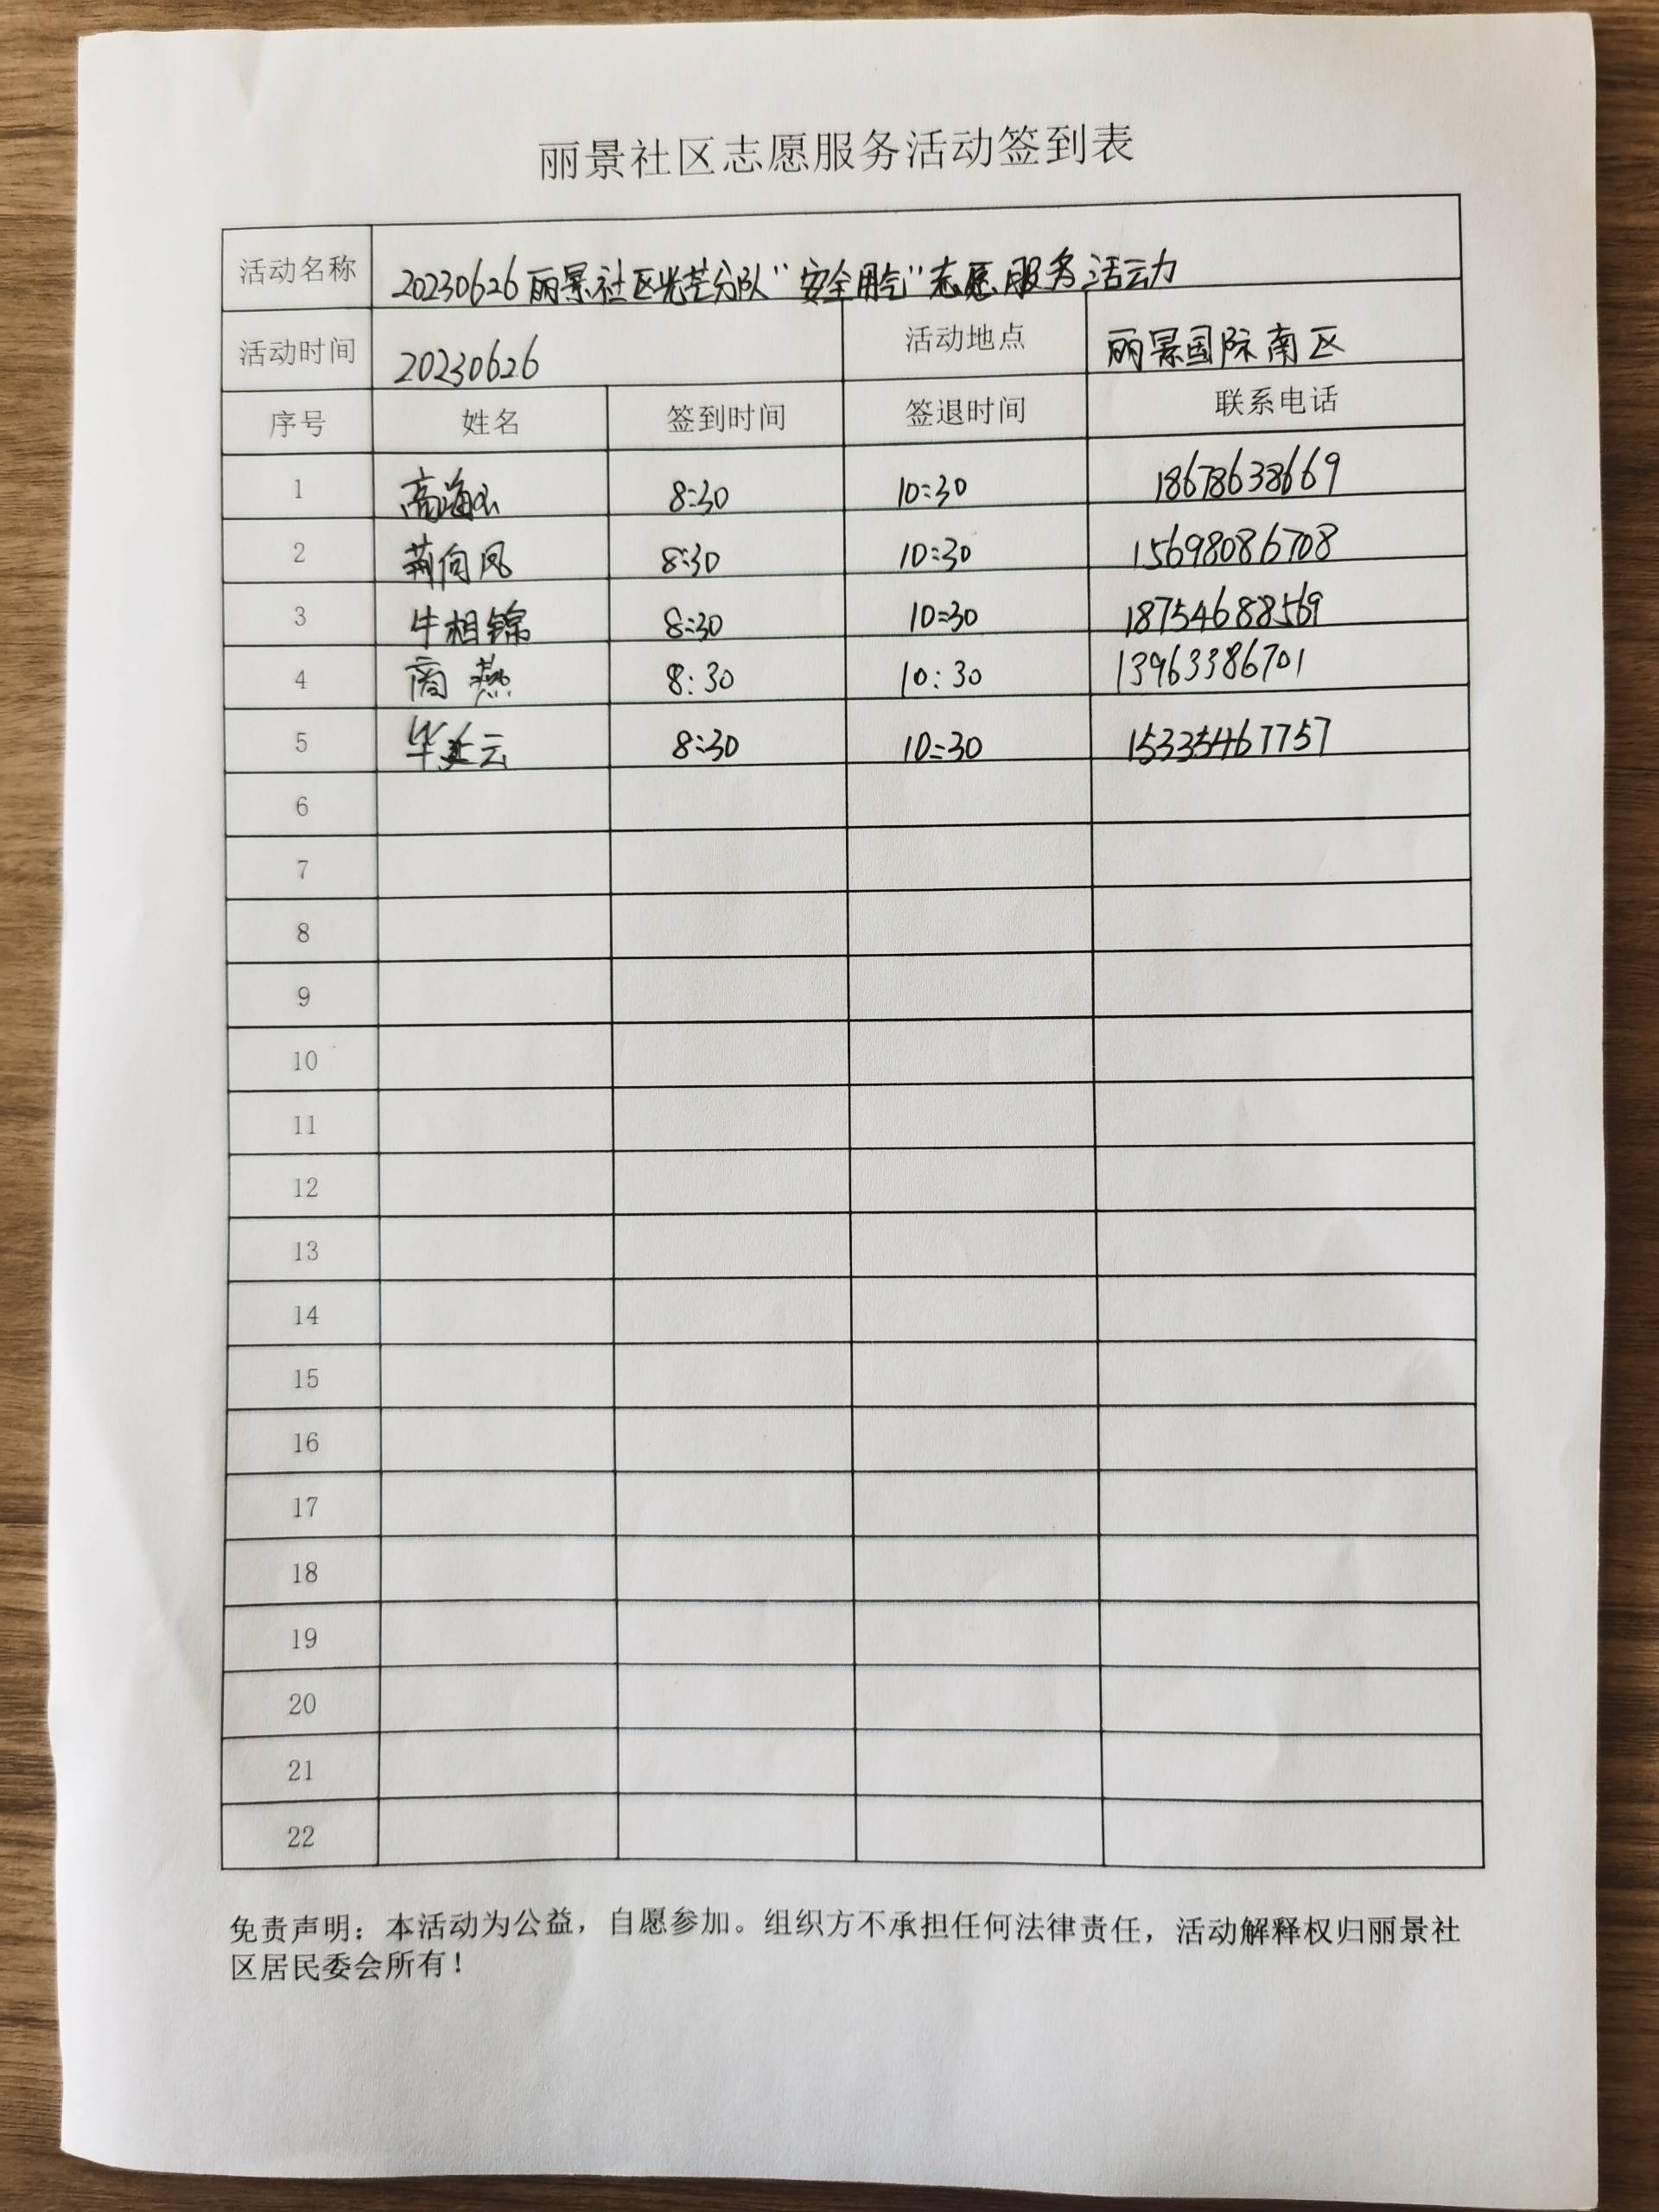 丽景社区志愿服务活动签到表
活动名称 20230626丽景社区光芒分队"安全用气"志愿服务活动
活动时间 20230626 活动地点 丽景国际南区
序号 姓名 签到时间 签退时间 联系电话
1 高海 8:30 10:30 18678638669
2 荆向风 8:30 10:30 15698086708
3 牛相锦 8:30 10:30 18754688569
4 商燕 8:30 10:30 13963386701
5 华云 8:30 10:30 15335467757
6
7
8
9
10
11
12
13
14
15
16
17
18
19
20
21
22
免责声明：本活动为公益，自愿参加。组织方不承担任何法律责任，活动解释权归丽景社
区居民委会所有！